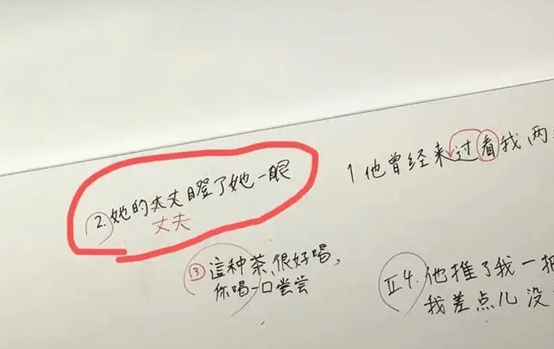 1 他曾经来过看我两
2. 她的夫丈瞪了她一眼
丈夫
3 這种茶很好喝,
你喝一口尝尝
II 4. 他推了我一把
我差点儿没